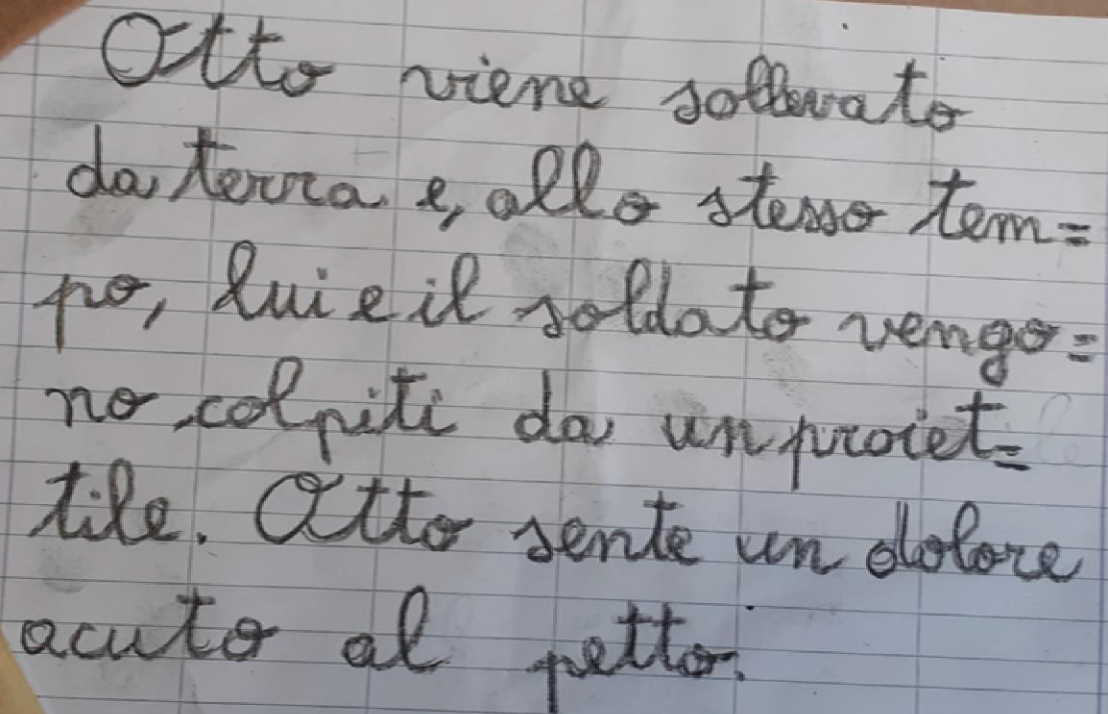 Otto viene sollevato
da terra e, allo stesso tem=
po, lui e il soldato vengo=
no colpiti da un proiet=
tile. Otto sente un dolore
acuto al petto.